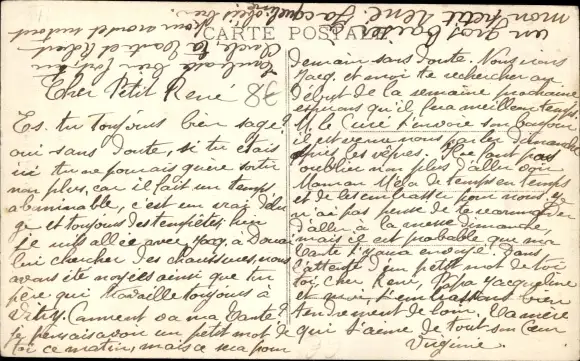 CARTE POSTALE
Cher Petit René
Es-tu toujours bien sage?
oui sans doute, si tu étais
ici tu ne pourrais guère sortir
non plus, car il fait un temps
abominable, c'est un vrai délu-
ge et toujours des tempêtes, hier
je suis allée avec Jacq. à Douai
lui chercher des chaussures, nous
avons été noyées ainsi que ton
père qui travaille toujours à
Vitry. Comment va ma Tante?
je pensais avoir un petit mot de
toi ce matin, mais ce sera pour
demain sans doute. Nous irons
Jacq. et moi te rechercher au
début de la semaine prochaine
espérons qu'il fera meilleur temps.
M. le Curé t'envoie son bonjour
il est venu nous parler dimanche
après les vêpres. Il ne faut pas
oublier non plus d'aller voir
Maman de temps en temps
et de les embrasser pour nous, je
n'ai pas pensé de te recommander
d'aller à la messe dimanche
mais il est probable que ma
Tante t'y aura envoyé. Dans
l'attente d'un petit mot de toi
toi, cher René, Papa Jacqueline
et moi, t'embrassons bien
tendrement de loin. Ta mère
qui t'aime de tout son cœur
Virginie
Embrasse bien fort ton
Oncle, ta Tante et Robert
pour nous et surtout
un gros baiser
mon petit René Jacqueline
87